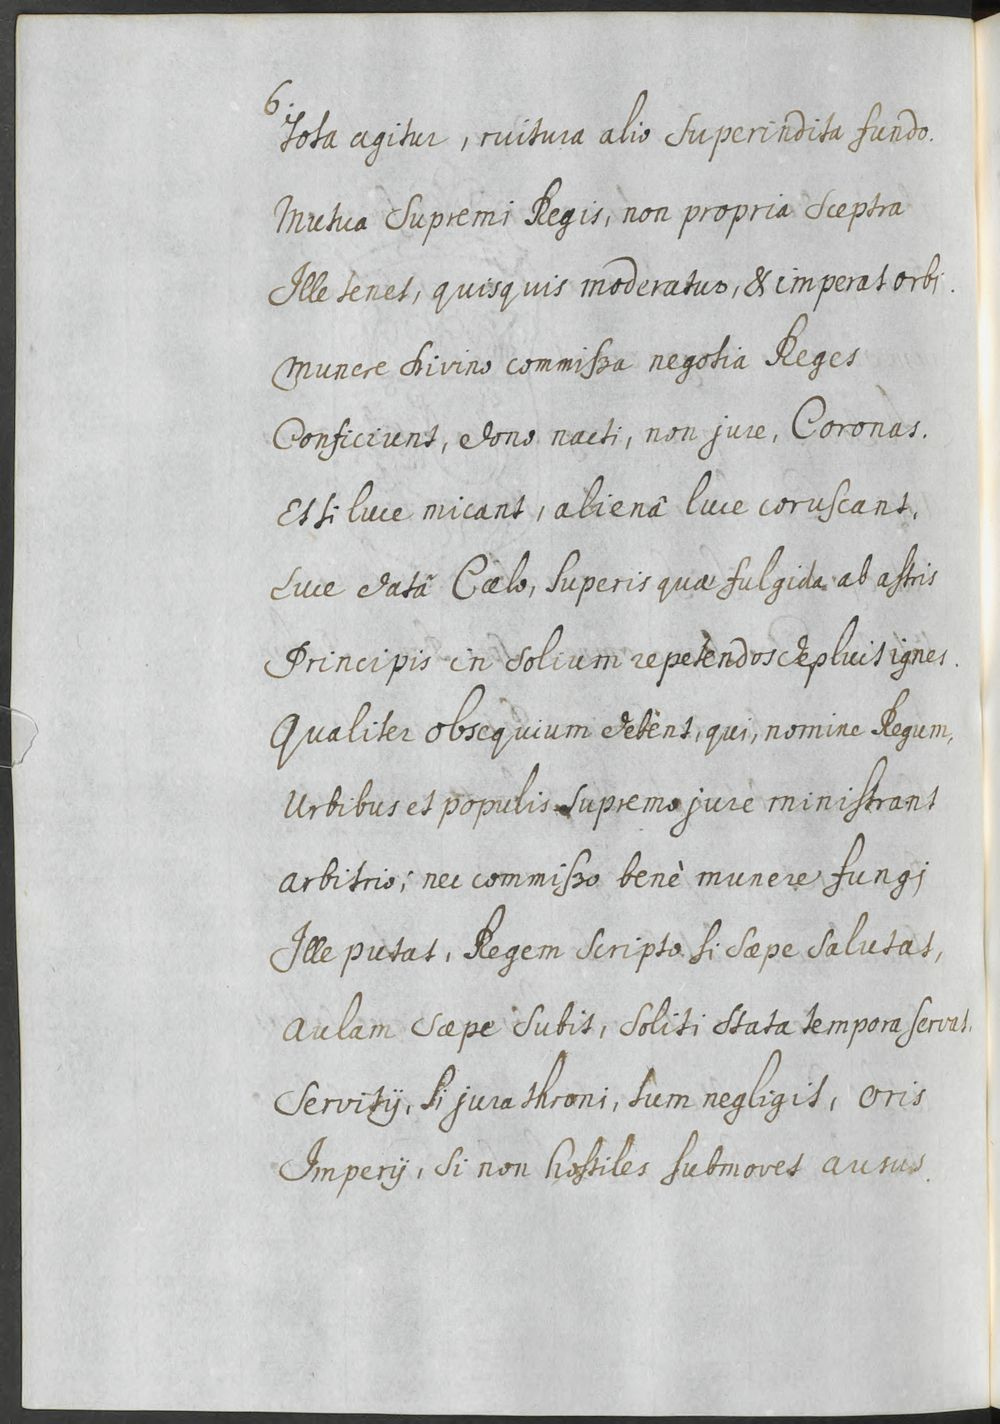 6.
Tota agitur, ruitura alio superindita fundo.
Mutua Supremi Regis, non propria Sceptra
Ille tenet, quisquis moderatur, & imperat orbi.
Munere Divino commissa negotia Reges
Conficiunt, dono nacti, non jure, Coronas.
Et si luce micant, alienâ luce coruscant,
Luce datâ Cælo, superis quæ fulgida ab astris
Principis in Solium repetendos depluit ignes.
Qualiter obsequium debent, qui, nomine Regum,
Urbibus et populis supremo jure ministrant
Arbitrio; nec commisso benè munere fungi
Ille putat, Regem Scripto si sæpe Salutat,
Aulam Sæpe Subit, Soliti Stata tempora servat,
Servitij, si jura throni, tum negligit, oris
Imperij, si non hostiles submovet ausus.